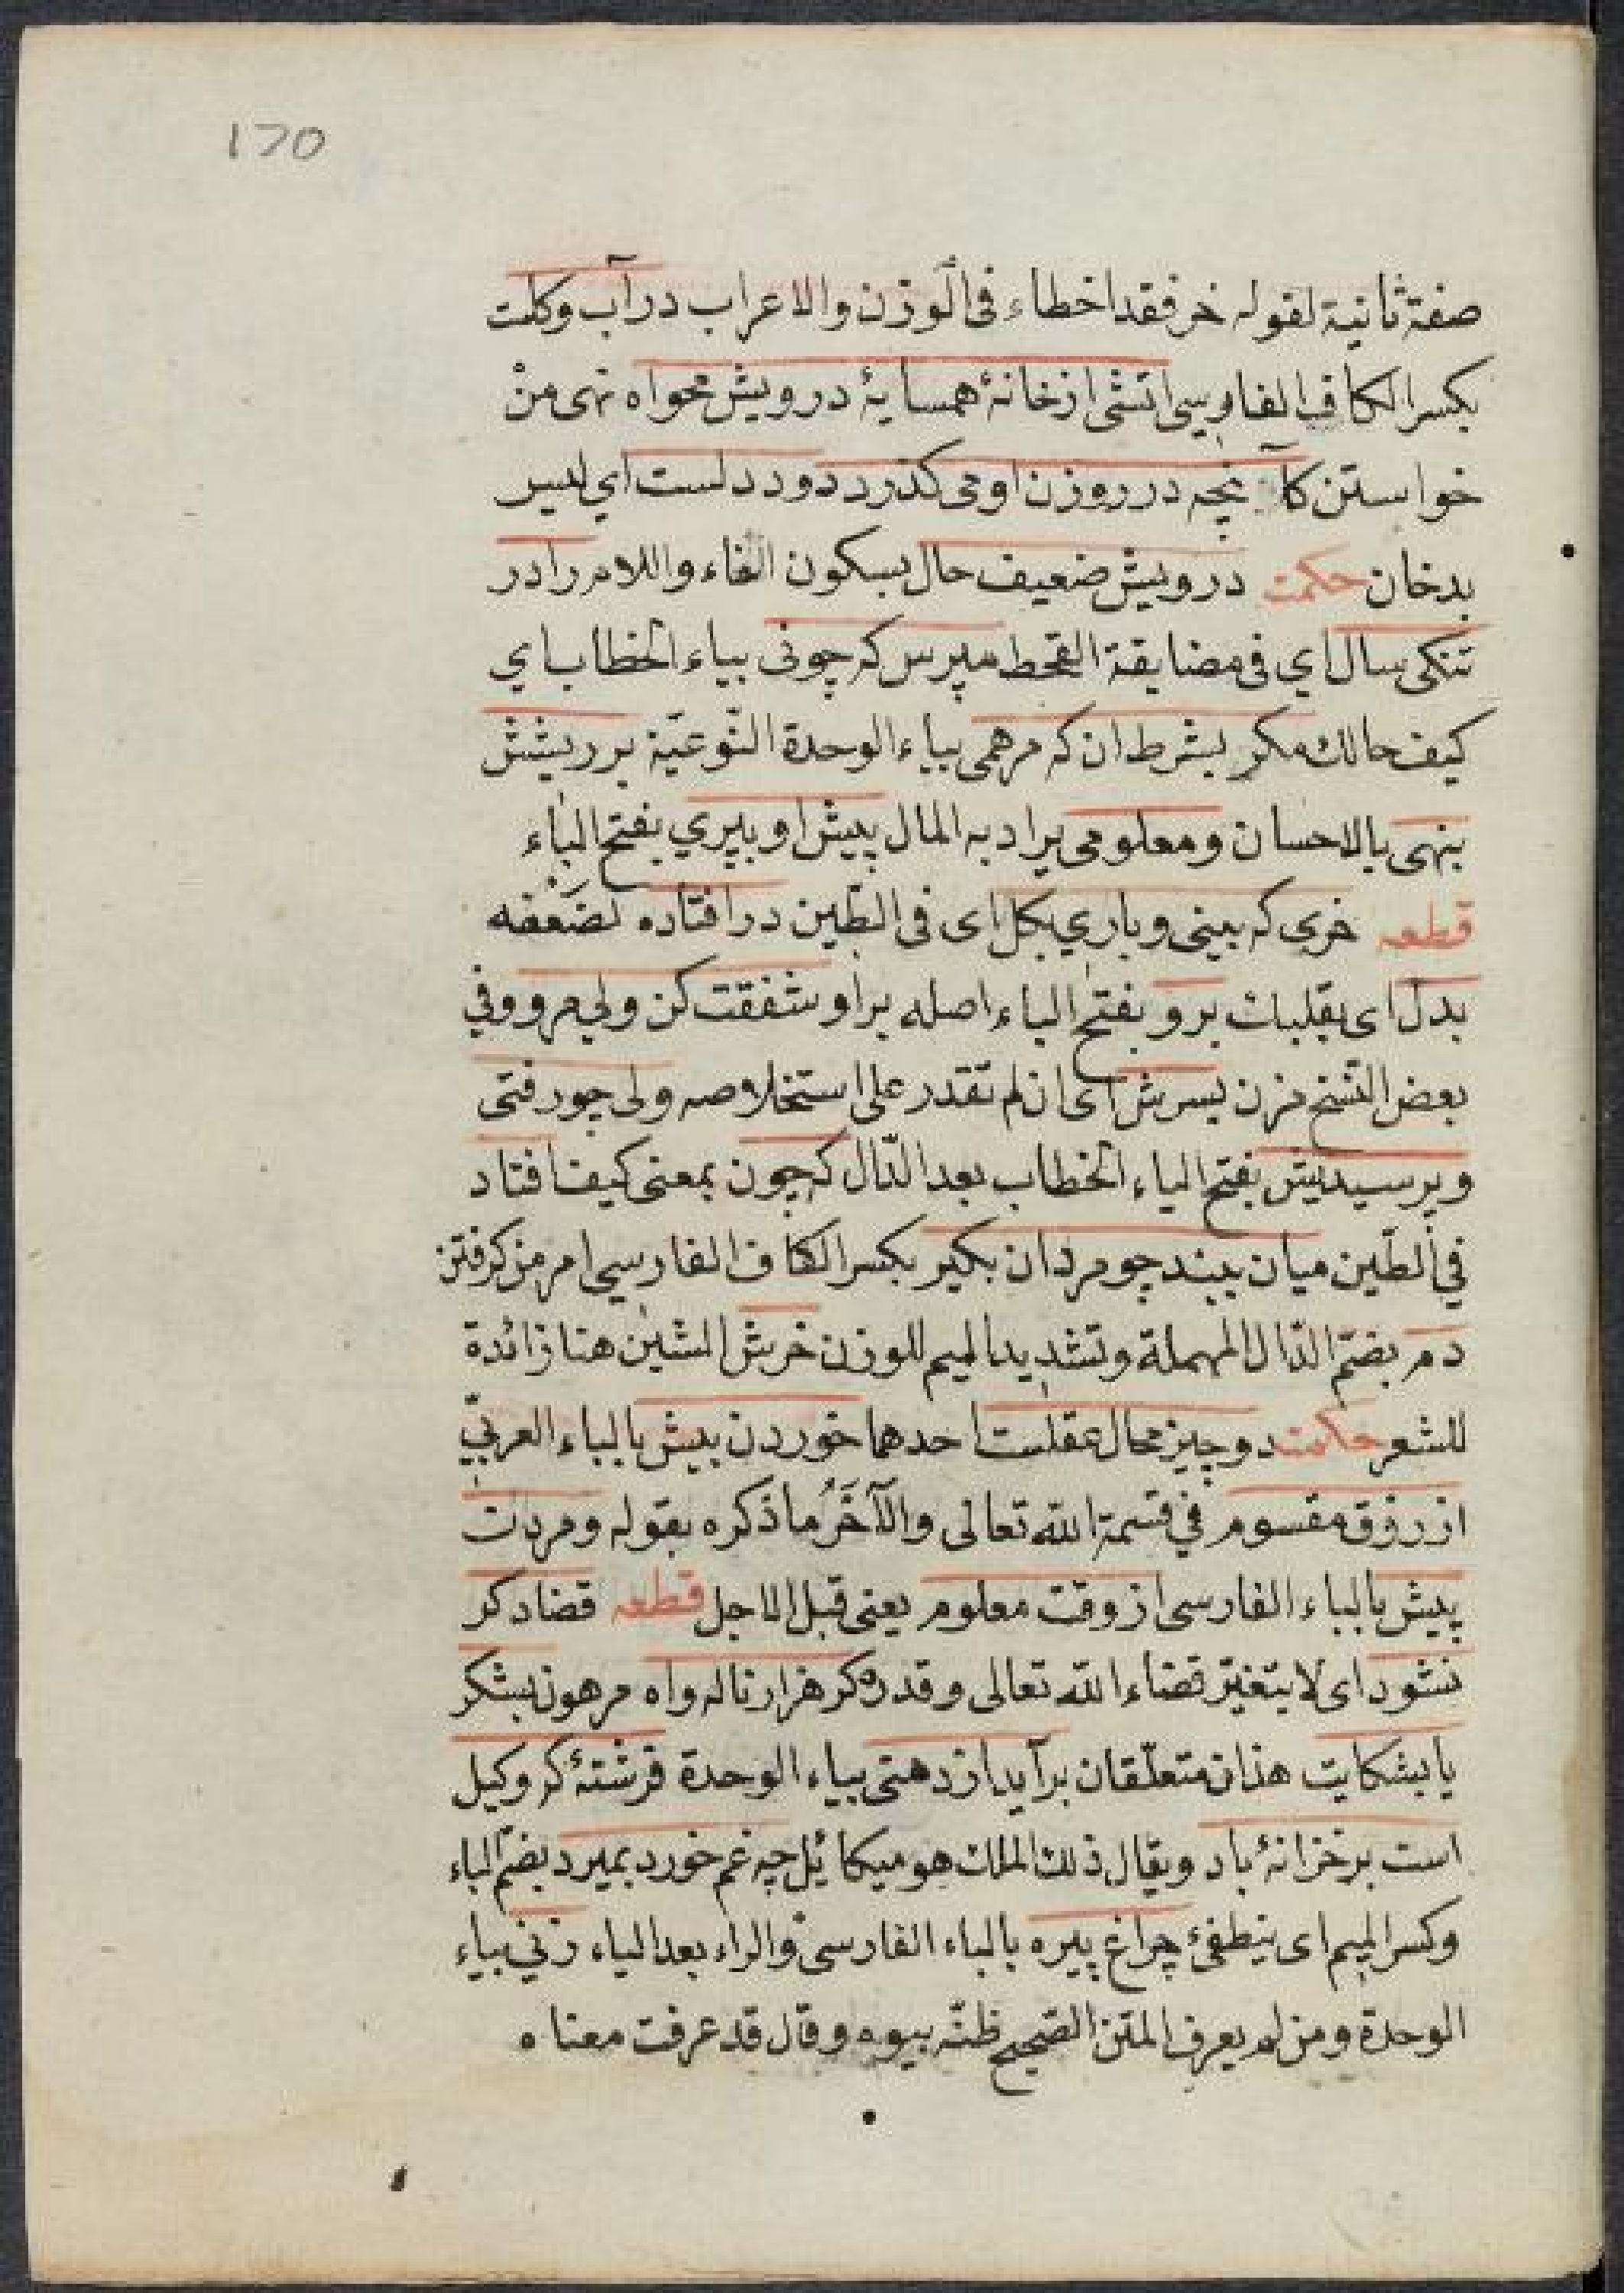 170
صفة ثانية لقوله خر فقد اخطاء فى الوزن والاعراب در آب وكلت
بكسر الكاف الفارسى آتشى از خانهٔ همسايهٔ درويش مخواه نهى منْ
خواستن كآنچه در روزن او مى كذرد دود دلست اي ليس
بدخان حكمت درويش ضعيف حال بسكون الفاء واللام را در
تنكى سال اي فى مضايقة القحط مپرس كه چونى بياء الخطاب اي
كيف حالك مكر بشرط ان كه مرهمى بياء الوحدة النّوعيّة بر ريشش
بنهى بالاحسان ومعلومى يراد به المال پيش او ببري بفتح الباء
قطعه خرى كه بينى وبارى بكل اى فى الطّين در افتاده لضَعْفه
بدل اى بقلبك برو بفتح الباء اصله بر او شفقت كن ولى مرو وفي
بعض النّسخ مزن بسرش اى ان لم تقدر على استخلاصه ولى چو رفتى
وپرسيديش بفتح الياء الخطاب بعد الدّال كه چون بمعنى كيف افتاد
في الطّين ميان ببند چو مردان بكير بكسر الكاف الفارسى امر من كرفتن
دم بضمّ الدّال المهملة وتشديد الميم للوزن خرش الشين هنا زائدة
للشعر حكمت دو چيز محال عقلست احدهما خوردن بيش بالباء العربيّ
از رزق مقسوم في قسمة الله تعالى والآخَرُ ما ذكره بقوله ومردن
پيش بالباء الفارسى از وقت معلوم يعنى قبل الاجل قطعه قضا دكر
نشود اى لا يتغيّر قضاء الله تعالى وقدره كر هزار ناله واه مرهون بشكر
يا بشكايت هذان متعلّقان برآيد از دهنى بياء الوحدة فرشتهٔ كه وكيل
است بر خزانهٔ باد ويقال ذلك الملك هو ميكائل چه غم خورد بميرد بضمّ الباء
وكسر الميم اى ينطفئ چراغ پيره بالباء الفارسى والراء بعد الياء زني بياء
الوحدة ومن لم يعرف المتن الصّحيح ظنّه بيوه وقال قد عرفت معناه